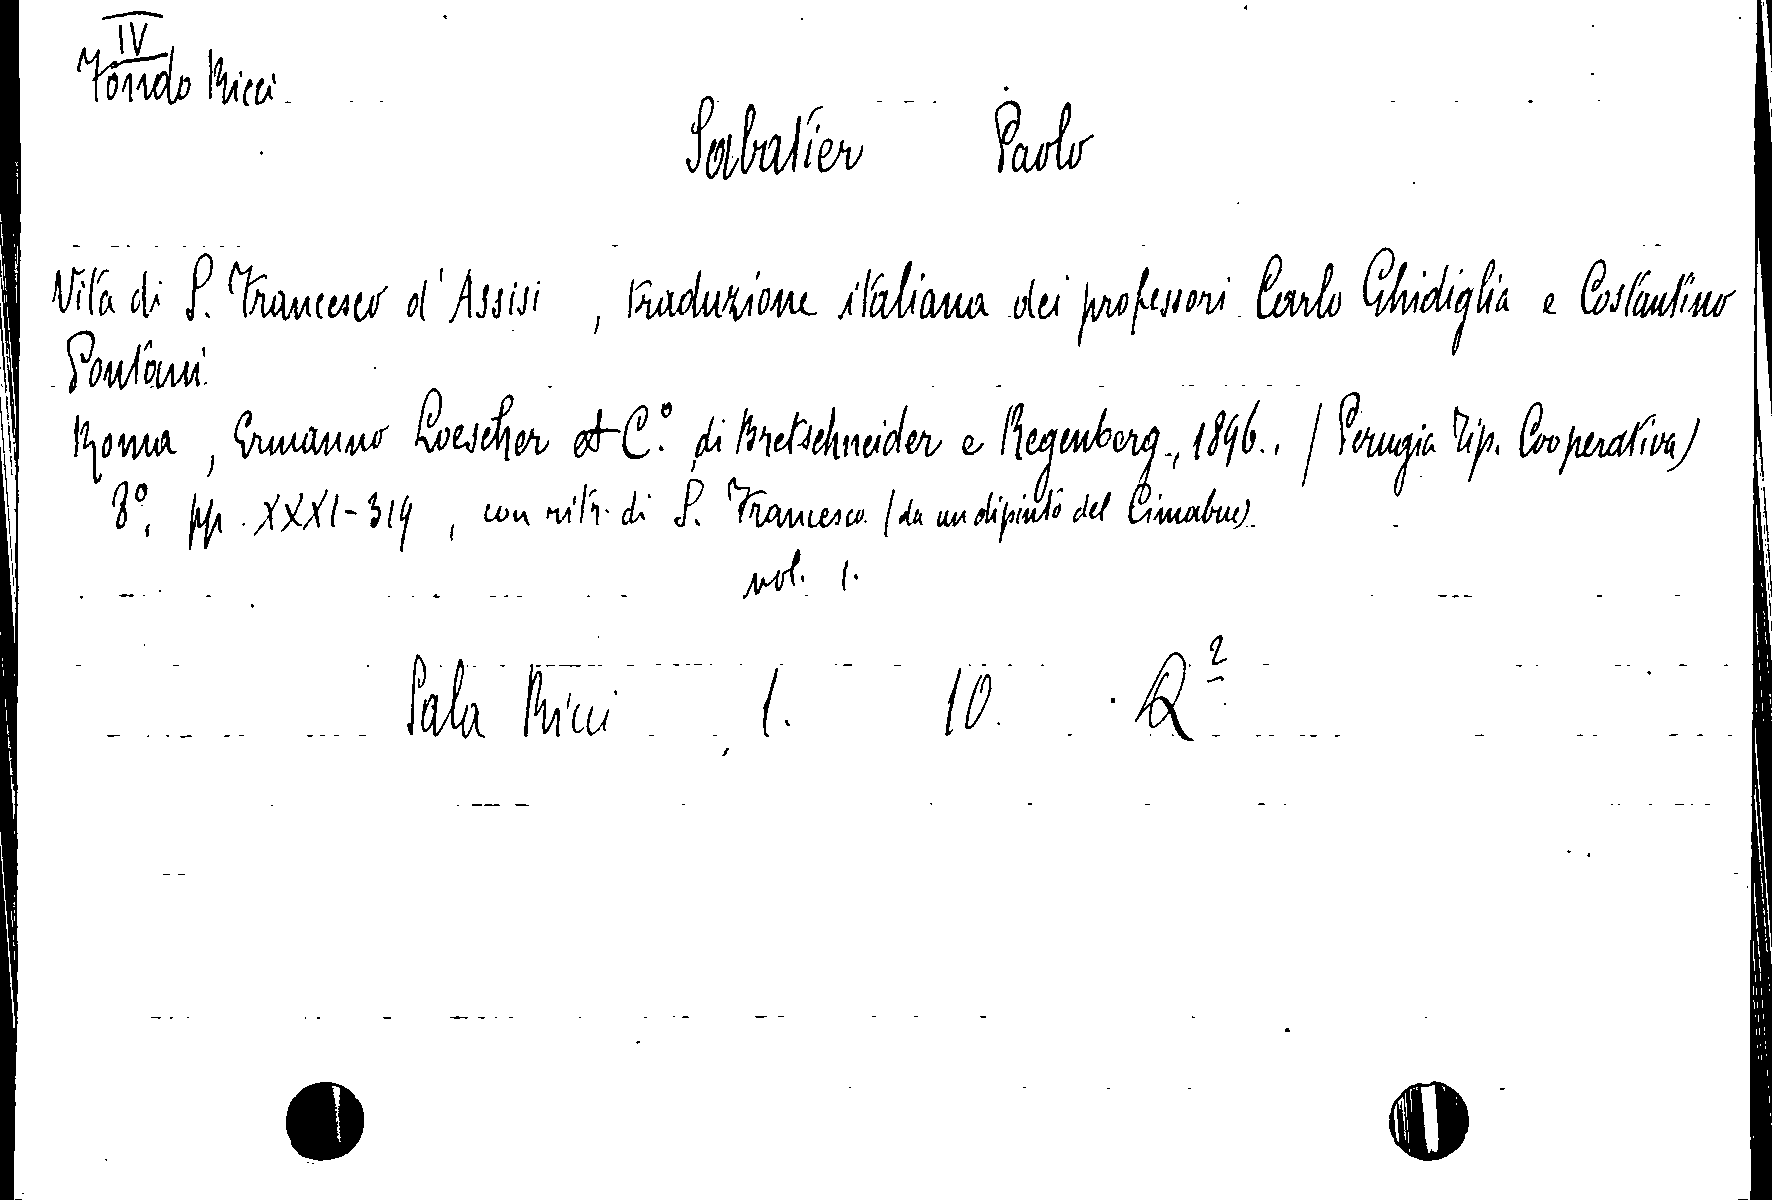 IV
Fondo Ricci
Sabatier Paolo
Vita di S. Francesco d'Assisi, traduzione italiana dei professori Carlo Ghidiglia e Costantino
Pontani
Roma, Ermanno Loescher et C.° di Bretschneider e Regenberg, 1896.. (Perugia Tip. Cooperativa)
8°, pp. XXXI-319, con ritr. di S. Francesco (da un dipinto del Cimabue).
vol. 1.
Sala Ricci 1. 10. R²